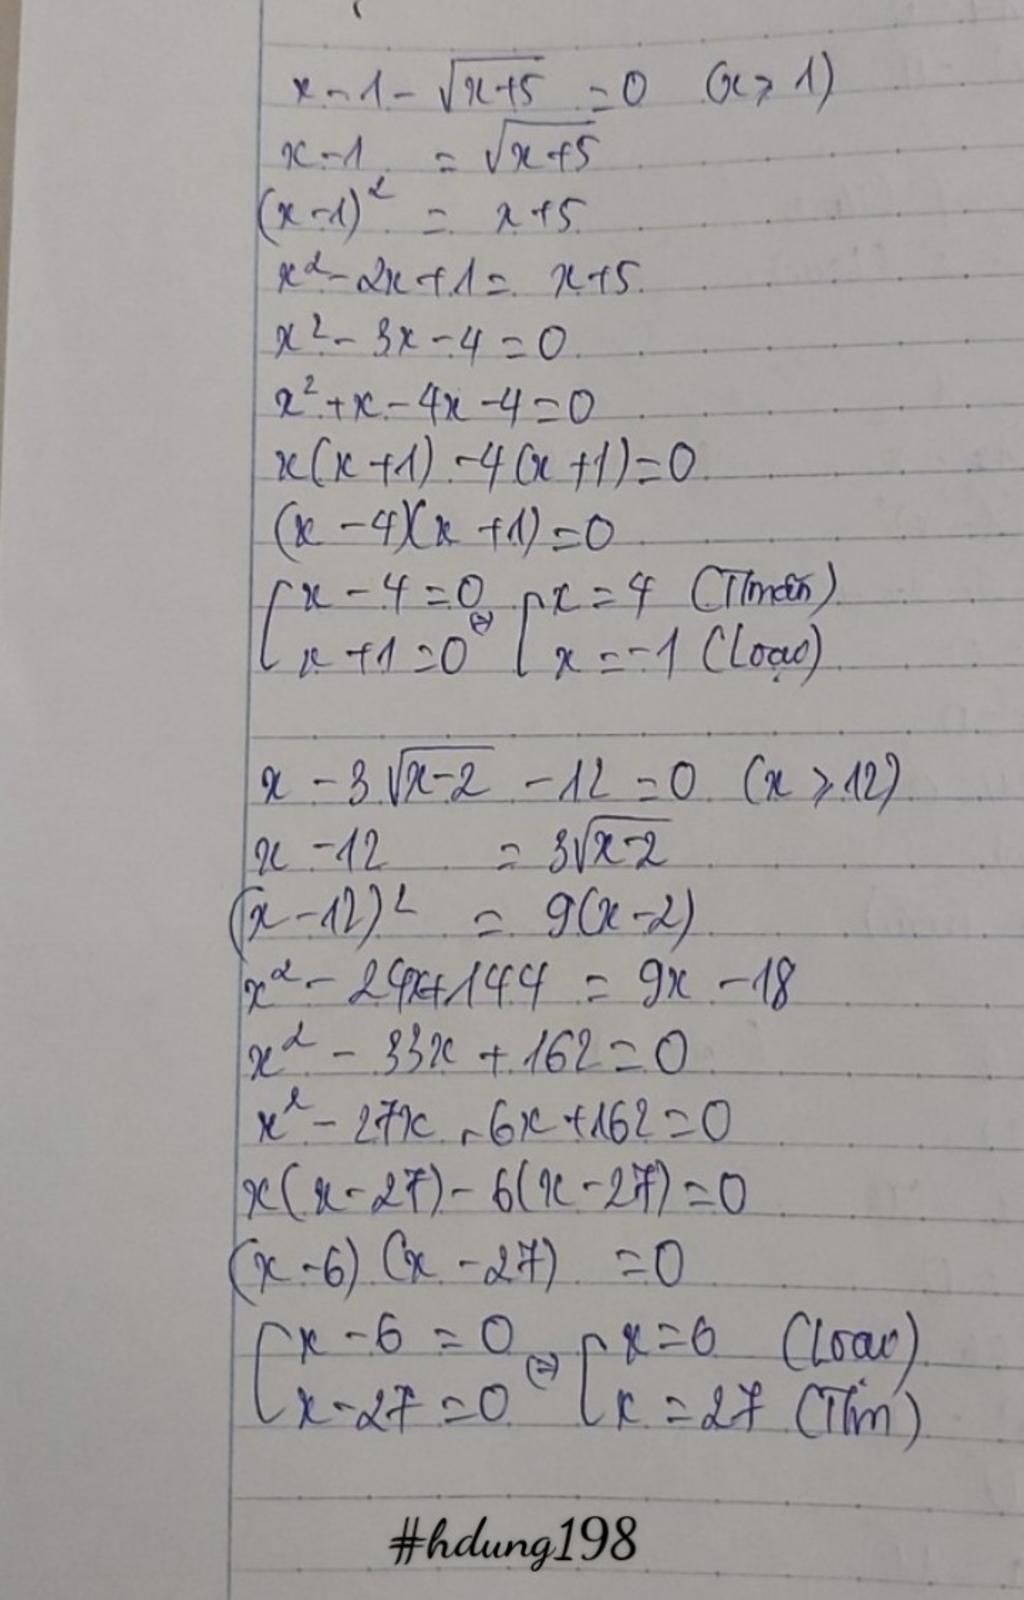 x - 1 - √(x+5) = 0 (x ≥ 1)
x - 1 = √(x+5)
(x - 1)² = x + 5
x² - 2x + 1 = x + 5
x² - 3x - 4 = 0
x² + x - 4x - 4 = 0
x(x + 1) - 4(x + 1) = 0
(x - 4)(x + 1) = 0
[ x - 4 = 0 ⇔ [ x = 4 (Tmãn)
x + 1 = 0 x = -1 (Loại)
x - 3√(x-2) - 12 = 0 (x ≥ 12)
x - 12 = 3√(x-2)
(x - 12)² = 9(x - 2)
x² - 24x + 144 = 9x - 18
x² - 33x + 162 = 0
x² - 27x - 6x + 162 = 0
x(x - 27) - 6(x - 27) = 0
(x - 6) (x - 27) = 0
[ x - 6 = 0 ⇔ [ x = 6 (Loại)
x - 27 = 0 x = 27 (Tm)
#hdung198